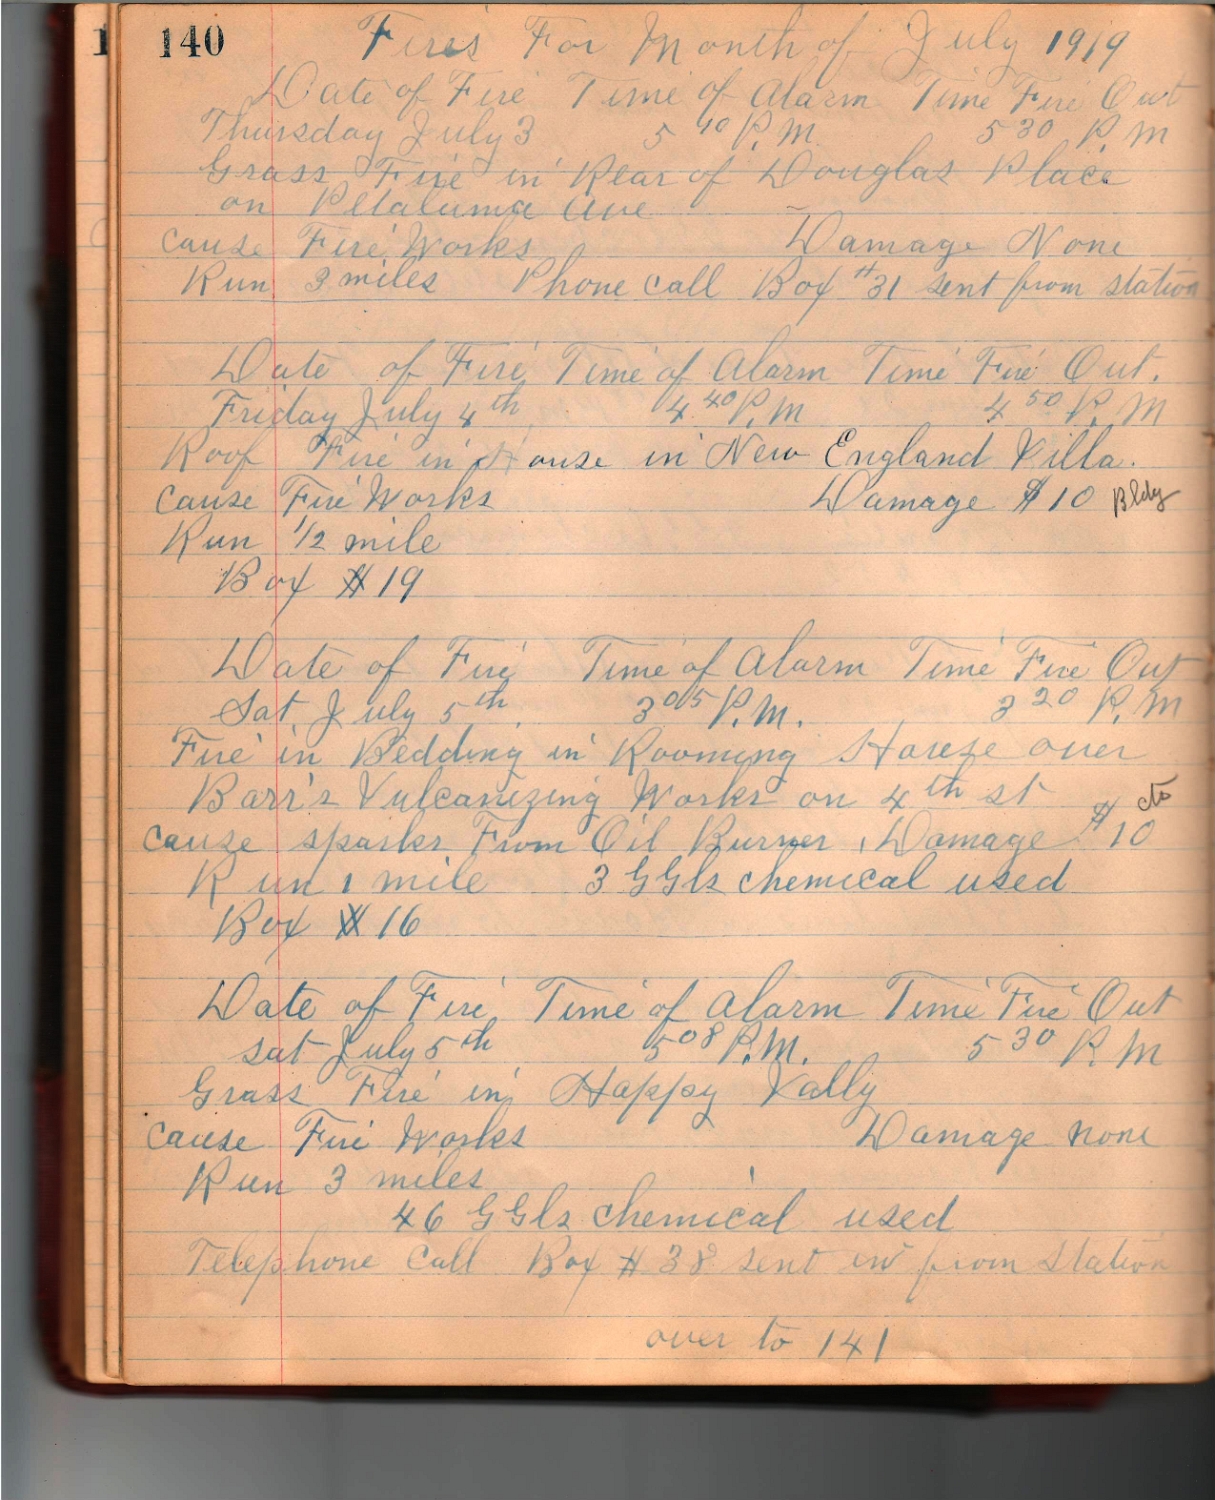 1
140 Fires For Month of July 1919
Date of Fire Time of Alarm Time Fire Out
Thursday July 3 5 40 P.M. 5 30 P.M
Grass Fire in Rear of Douglas Place
on Petaluma Ave
Cause Fire Works Damage None
Run 3 miles Phone call Box #31 sent from station
Date of Fire Time of Alarm Time Fire Out.
Friday July 4th 4 40 P.M 4 50 P.M
Roof Fire in House in New England Villa.
Cause Fire Works Damage $10 Bldg
Run 1/2 mile
Box # 19
Date of Fire Time of Alarm Time Fire Out
Sat. July 5th. 3 05 P.M. 3 20 P.M
Fire in Bedding in Rooming House over
Barr's Vulcanizing Works on 4th st
Cause sparks From Oil Burner, Damage $10 cto
Run 1 mile 3 GGls chemical used
Box # 16
Date of Fire Time of Alarm Time Fire Out
Sat July 5th 5 08 P.M. 5 30 P M
Grass Fire in Happy Vally
Cause Fire Works Damage none
Run 3 miles
46 GGls chemical used
Telephone Call Box # 38 sent in from Station
over to 141